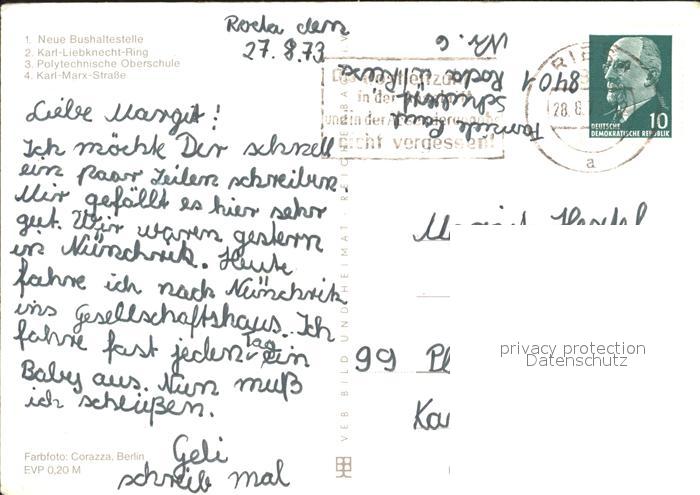 1. Neue Bushaltestelle
2. Karl-Liebknecht-Ring
3. Polytechnische Oberschule
4. Karl-Marx-Straße
Roda den
27.8.73
Liebe Margit!
Ich möchte Dir schnell
ein paar Zeilen schreiben.
Mir gefällt es hier sehr
gut. Wir waren gestern
in Nünschrik. Heute
fahre ich nach Nünschrik
ins Gesellschaftshaus. Ich
fahre fast jeden Tag ein
Baby aus. Nun muß
ich schließen.
Geli
schreib mal
Farbfoto: Corazza, Berlin
EVP 0,20 M
VEB BILD UND HEIMAT · REICHENBACH
Familie
8401 Roda
Nr. 6
in der
und in der
nicht vergessen!
28.8.
a
10
DEUTSCHE
DEMOKRATISCHE REPUBLIK
99 Pl
Ka
privacy protection
Datenschutz